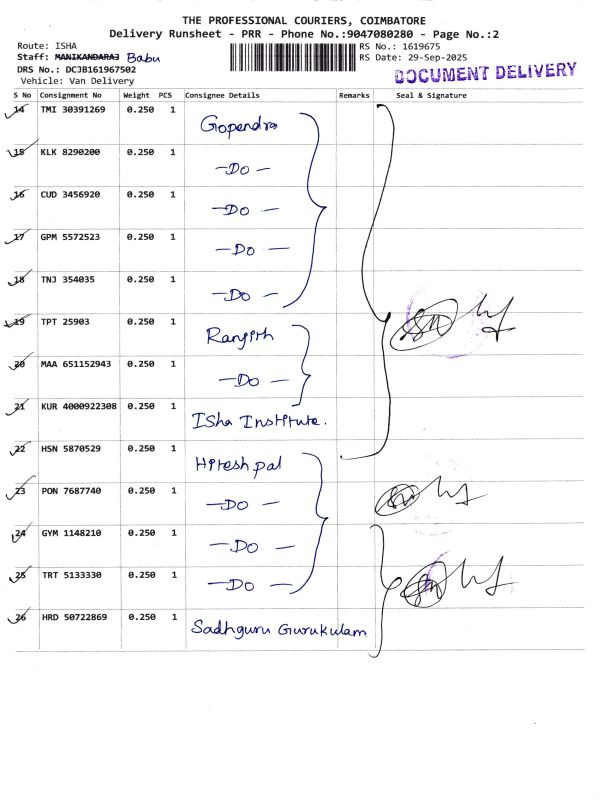 THE PROFESSIONAL COURIERS, COIMBATORE
Delivery Runsheet - PRR - Phone No.:9047080280 - Page No.:2
Route: ISHA
RS No.: 1619675
Staff: MANIKANDARAJ Babu
RS Date: 29-Sep-2025
DRS No.: DCJB161967502
DOCUMENT DELIVERY
Vehicle: Van Delivery
S No Consignment No Weight PCS Consignee Details Remarks Seal & Signature
14 TMI 30391269 0.250 1 Gopendra
15 KLK 8290200 0.250 1 -Do-
16 CUD 3456920 0.250 1 -Do-
17 GPM 5572523 0.250 1 -Do-
18 TNJ 354035 0.250 1 -Do-
19 TPT 25903 0.250 1 Ranjith
20 MAA 651152943 0.250 1 -Do-
21 KUR 4000922308 0.250 1 Isha Institute.
22 HSN 5870529 0.250 1 Hitesh pal
23 PON 7687740 0.250 1 -Do-
24 GYM 1148210 0.250 1 -Do-
25 TRT 5133330 0.250 1 -Do-
26 HRD 50722869 0.250 1 Sadhguru Gurukulam